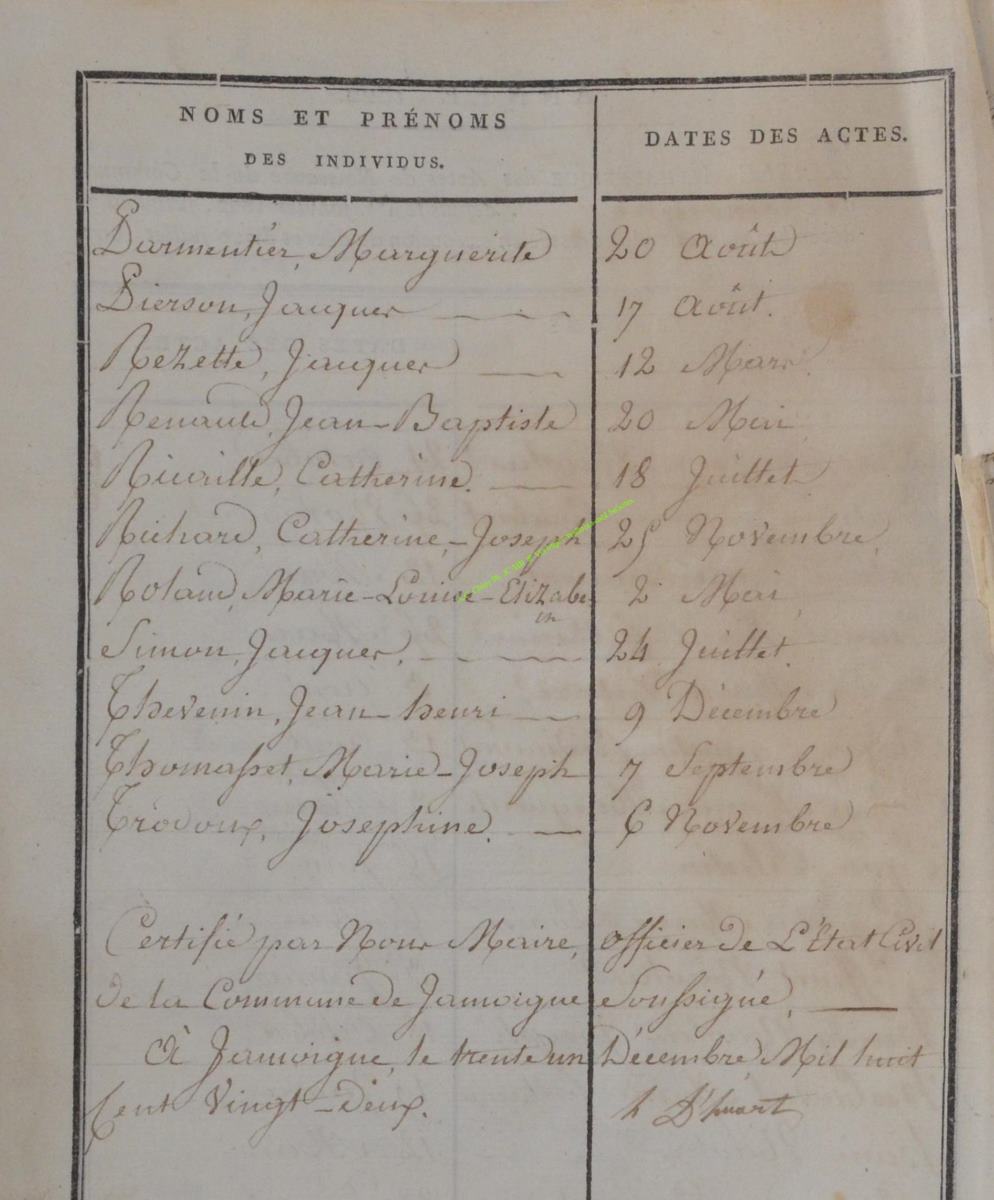 NOMS ET PRÉNOMS
DES INDIVIDUS.
DATES DES ACTES.
Parmentier, Marguerite 20 Août
Pierson, Jacques 17 Août.
Rezette, Jacques 12 Mars.
Renauld, Jean-Baptiste 20 Mai
Ricaille, Catherine. 18 Juillet
Richard, Catherine,-Joseph 25 Novembre.
Roland, Marie-Louise-Elizabe 2 Mai
th
Simon, Jacques. 24 Juillet.
Thevenin, Jean-henri 9 Décembre
Thomasset, Marie-Joseph 7 Septembre
Trodoux, Josephine. 6 Novembre
Certifié par Nous Maire, officier de L'État Civil
de la Commune de Jamoigne Soussigné,
À Jamoigne, le trente un Décembre Mil huit
Cent Vingt-deux. D'huart